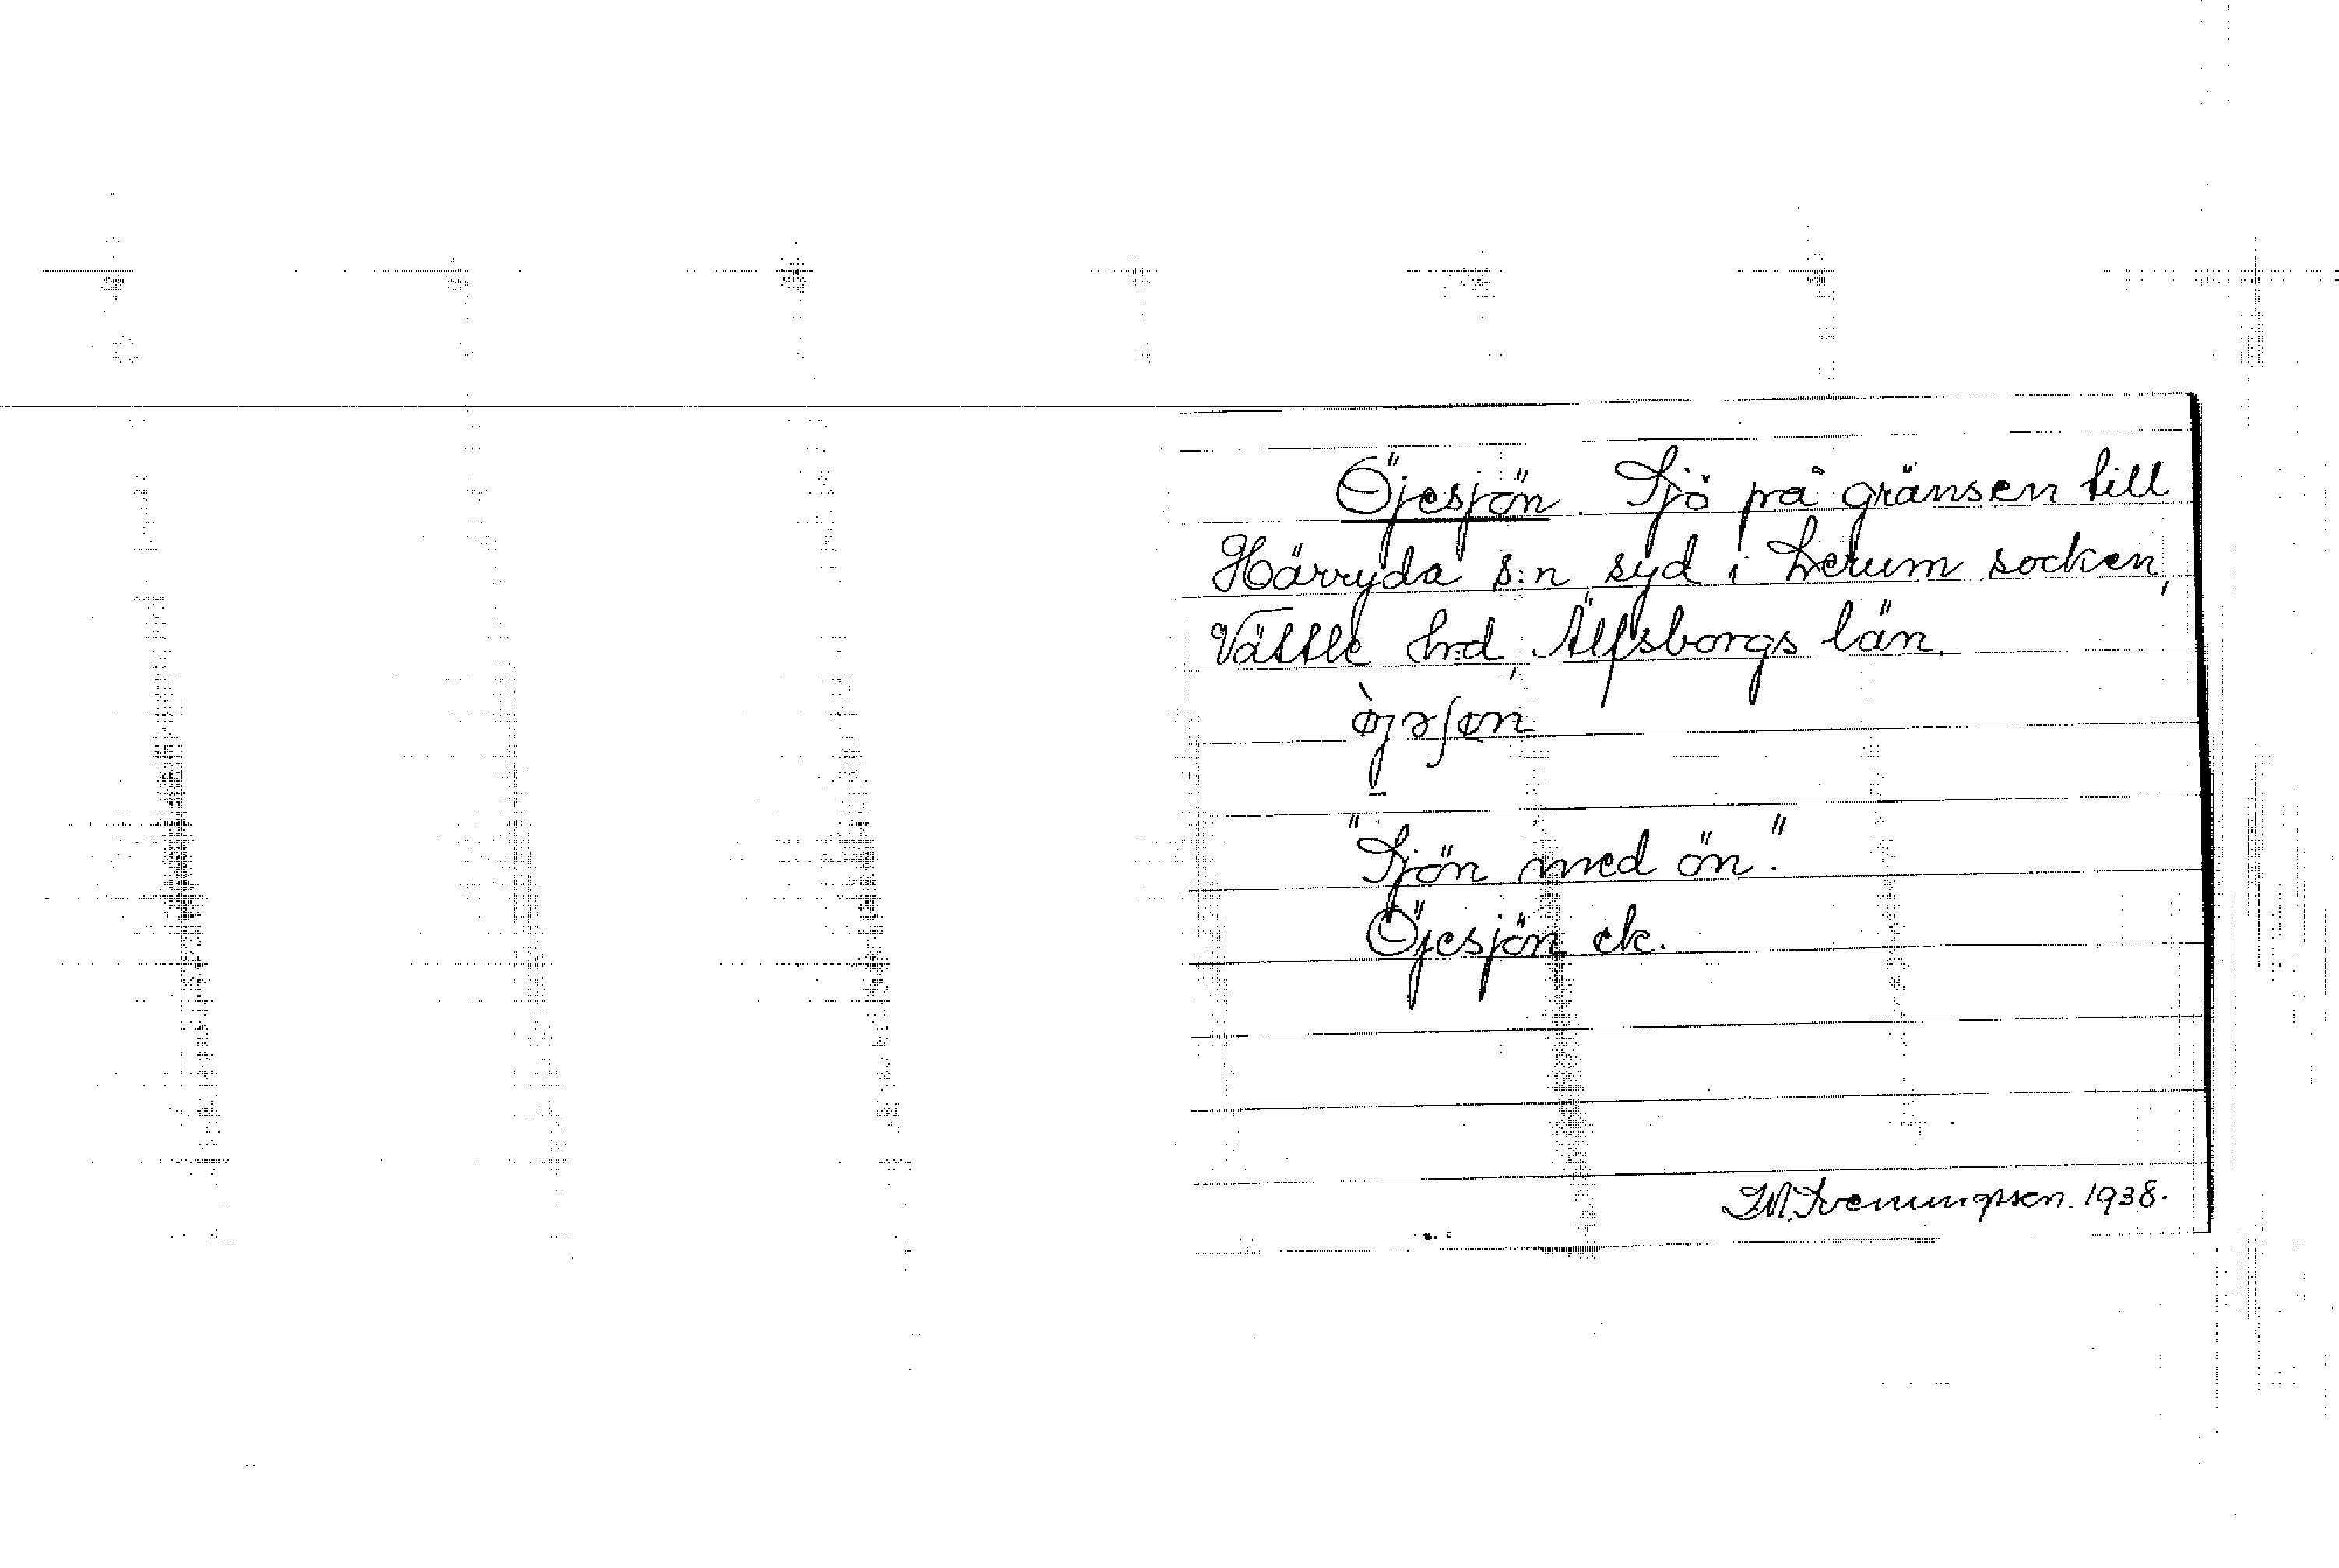 Öjesjön. Sjö på gränsen till
Härryda s:n syd i Lerum socken,
Vättle hrd, Älfsborgs län.
"Sjön med ön."
Öjesjön ek.
1938.